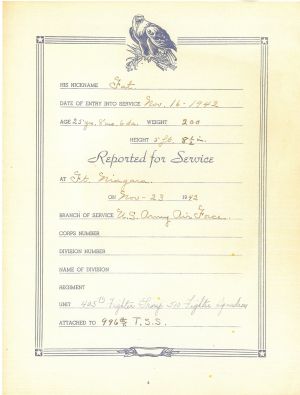 HIS NICKNAME Fat.
DATE OF ENTRY INTO SERVICE Nov. 16 - 1942
AGE 25 yrs. 8 mo. 6 da. WEIGHT 200
HEIGHT 5 ft. 8½ in.
Reported for Service
AT Ft. Niagara.
ON Nov - 23 1942
BRANCH OF SERVICE U.S. Army Air Force.
CORPS NUMBER
DIVISION NUMBER
NAME OF DIVISION
REGIMENT
UNIT 405th Fighter Group 510 Fighter Squadron
ATTACHED TO 996th T.S.S.